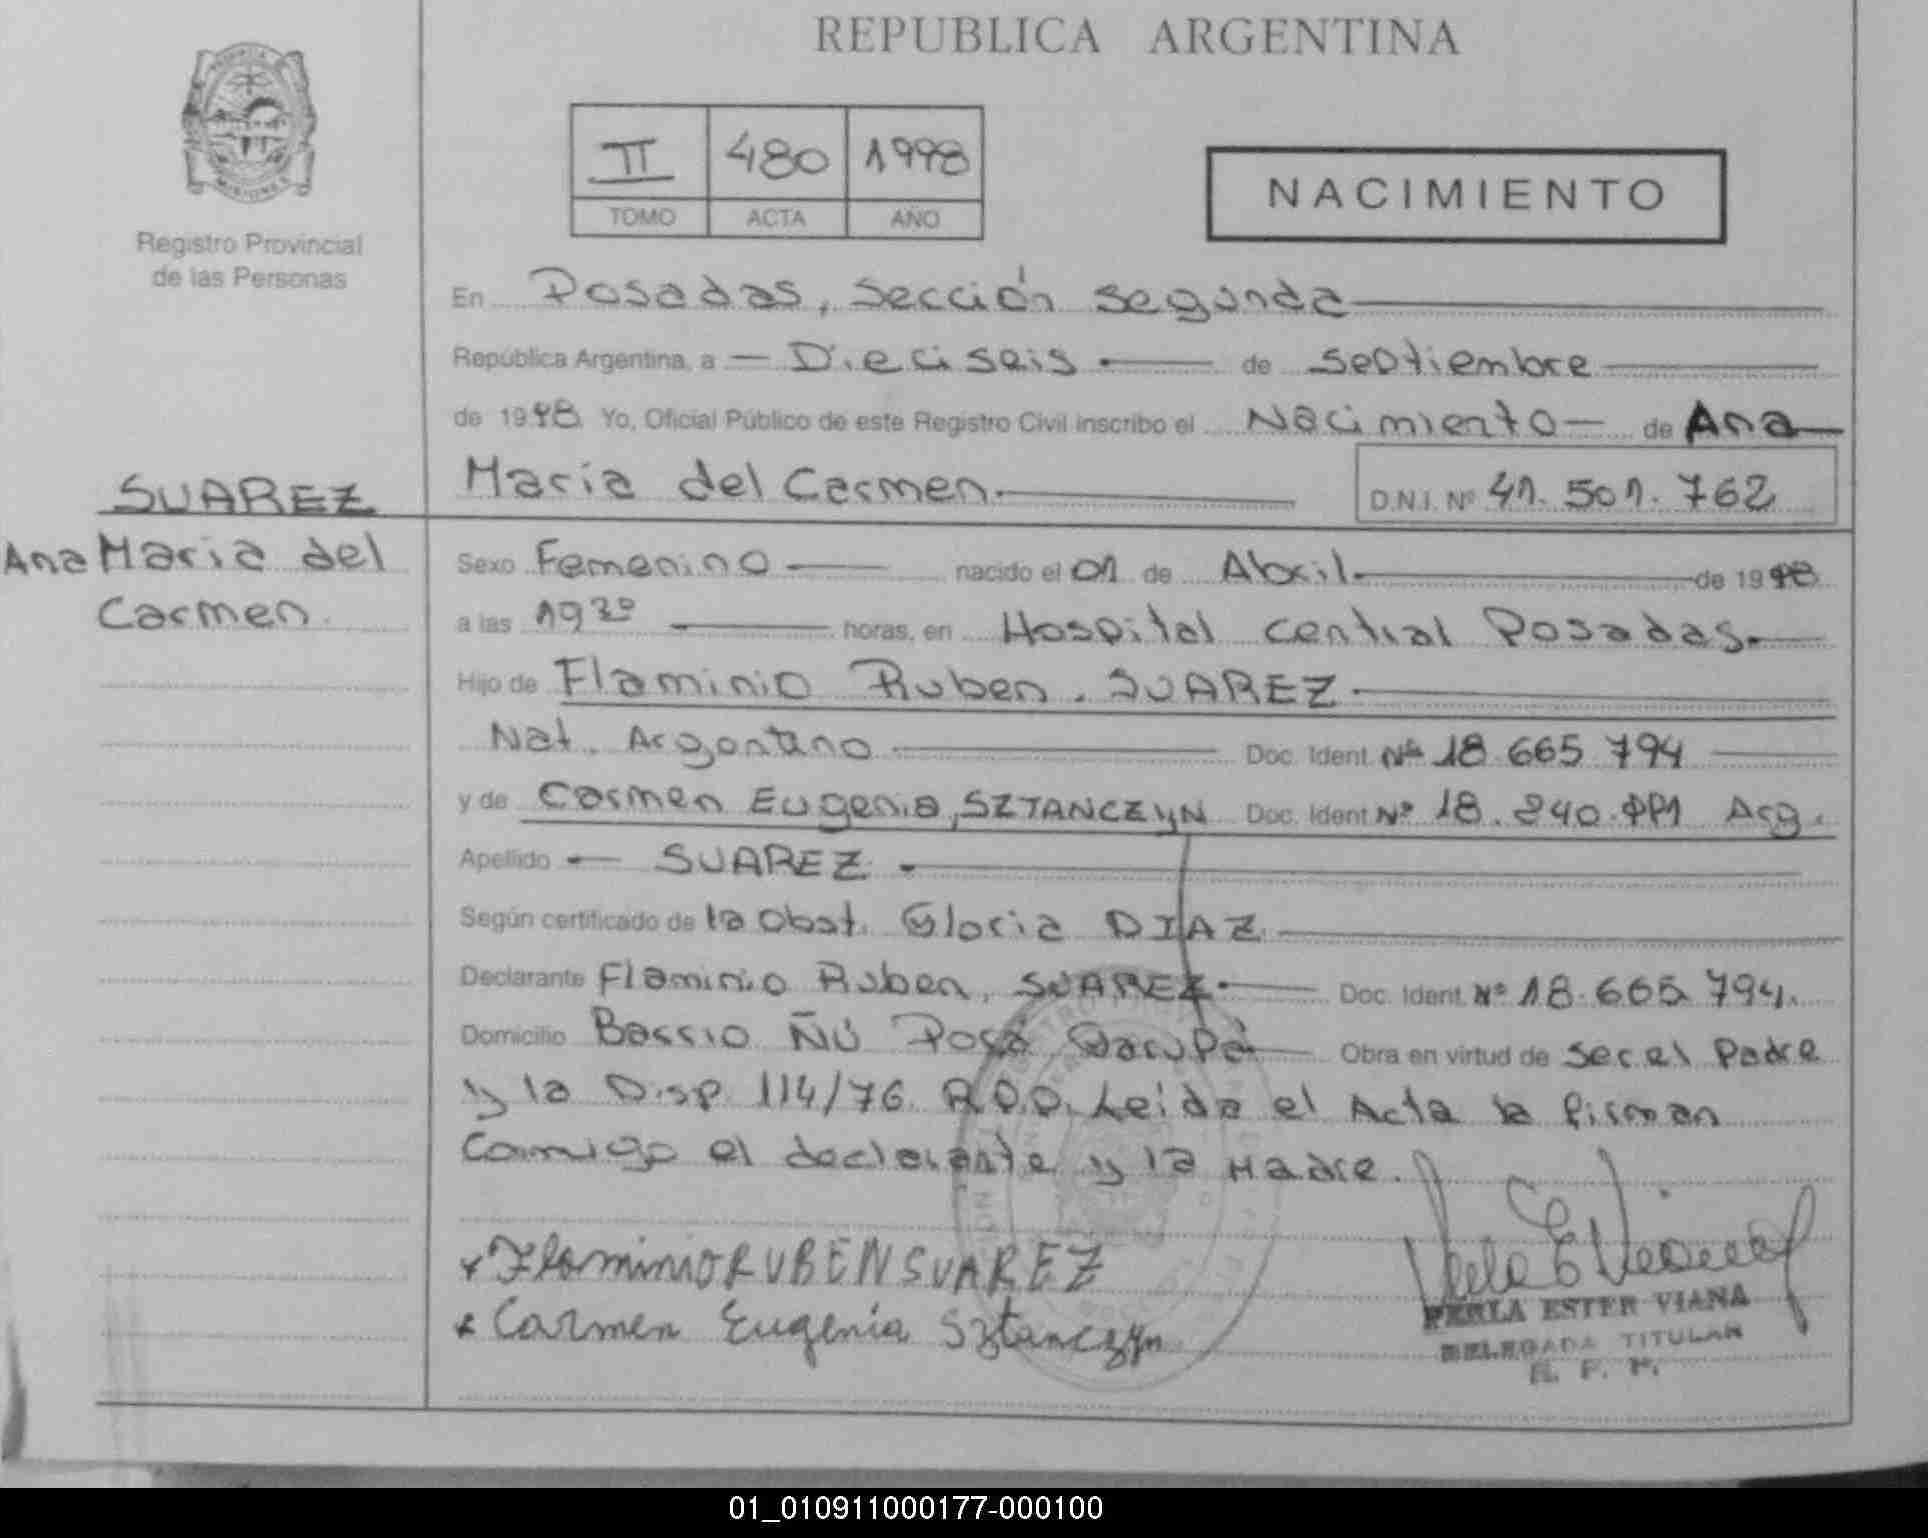 REPUBLICA ARGENTINA
MISIONES
Registro Provincial
de las Personas
II 480 1998
TOMO ACTA AÑO
NACIMIENTO
En Posadas, Sección Segunda
República Argentina, a Dieciseis de Septiembre
de 1998 Yo, Oficial Público de este Registro Civil inscribo el Nacimiento de Ana
Maria del Carmen D.N.I. Nº 41.501.762
SUAREZ
Ana Maria del
Carmen.
Sexo Femenino nacido el 01 de Abril de 1998
a las 19 horas, en Hospital Central Posadas.
Hijo de Flaminio Ruben, SUAREZ
Nat. Argentino Doc. Ident. Nº 18.665.794
y de Carmen Eugenia, SZTANCZYN Doc. Ident Nº 18.240. Arg.
Apellido SUAREZ
Según certificado de la Obst. Gloria DIAZ
Declarante Flaminio Ruben, SUAREZ Doc. Ident. Nº 18.665.794.
Domicilio Barrio Ñú Porá Garupá Obra en virtud de ser el Padre
y la Disp. 114/76 Leida el Acta la firman
Conmigo el declarante y la Madre.
Flaminio RUBEN SUAREZ
Carmen Eugenia Sztanczyn
PERLA ESTER VIANA
DELEGADA TITULAR
R. P. P.
01_010911000177-000100